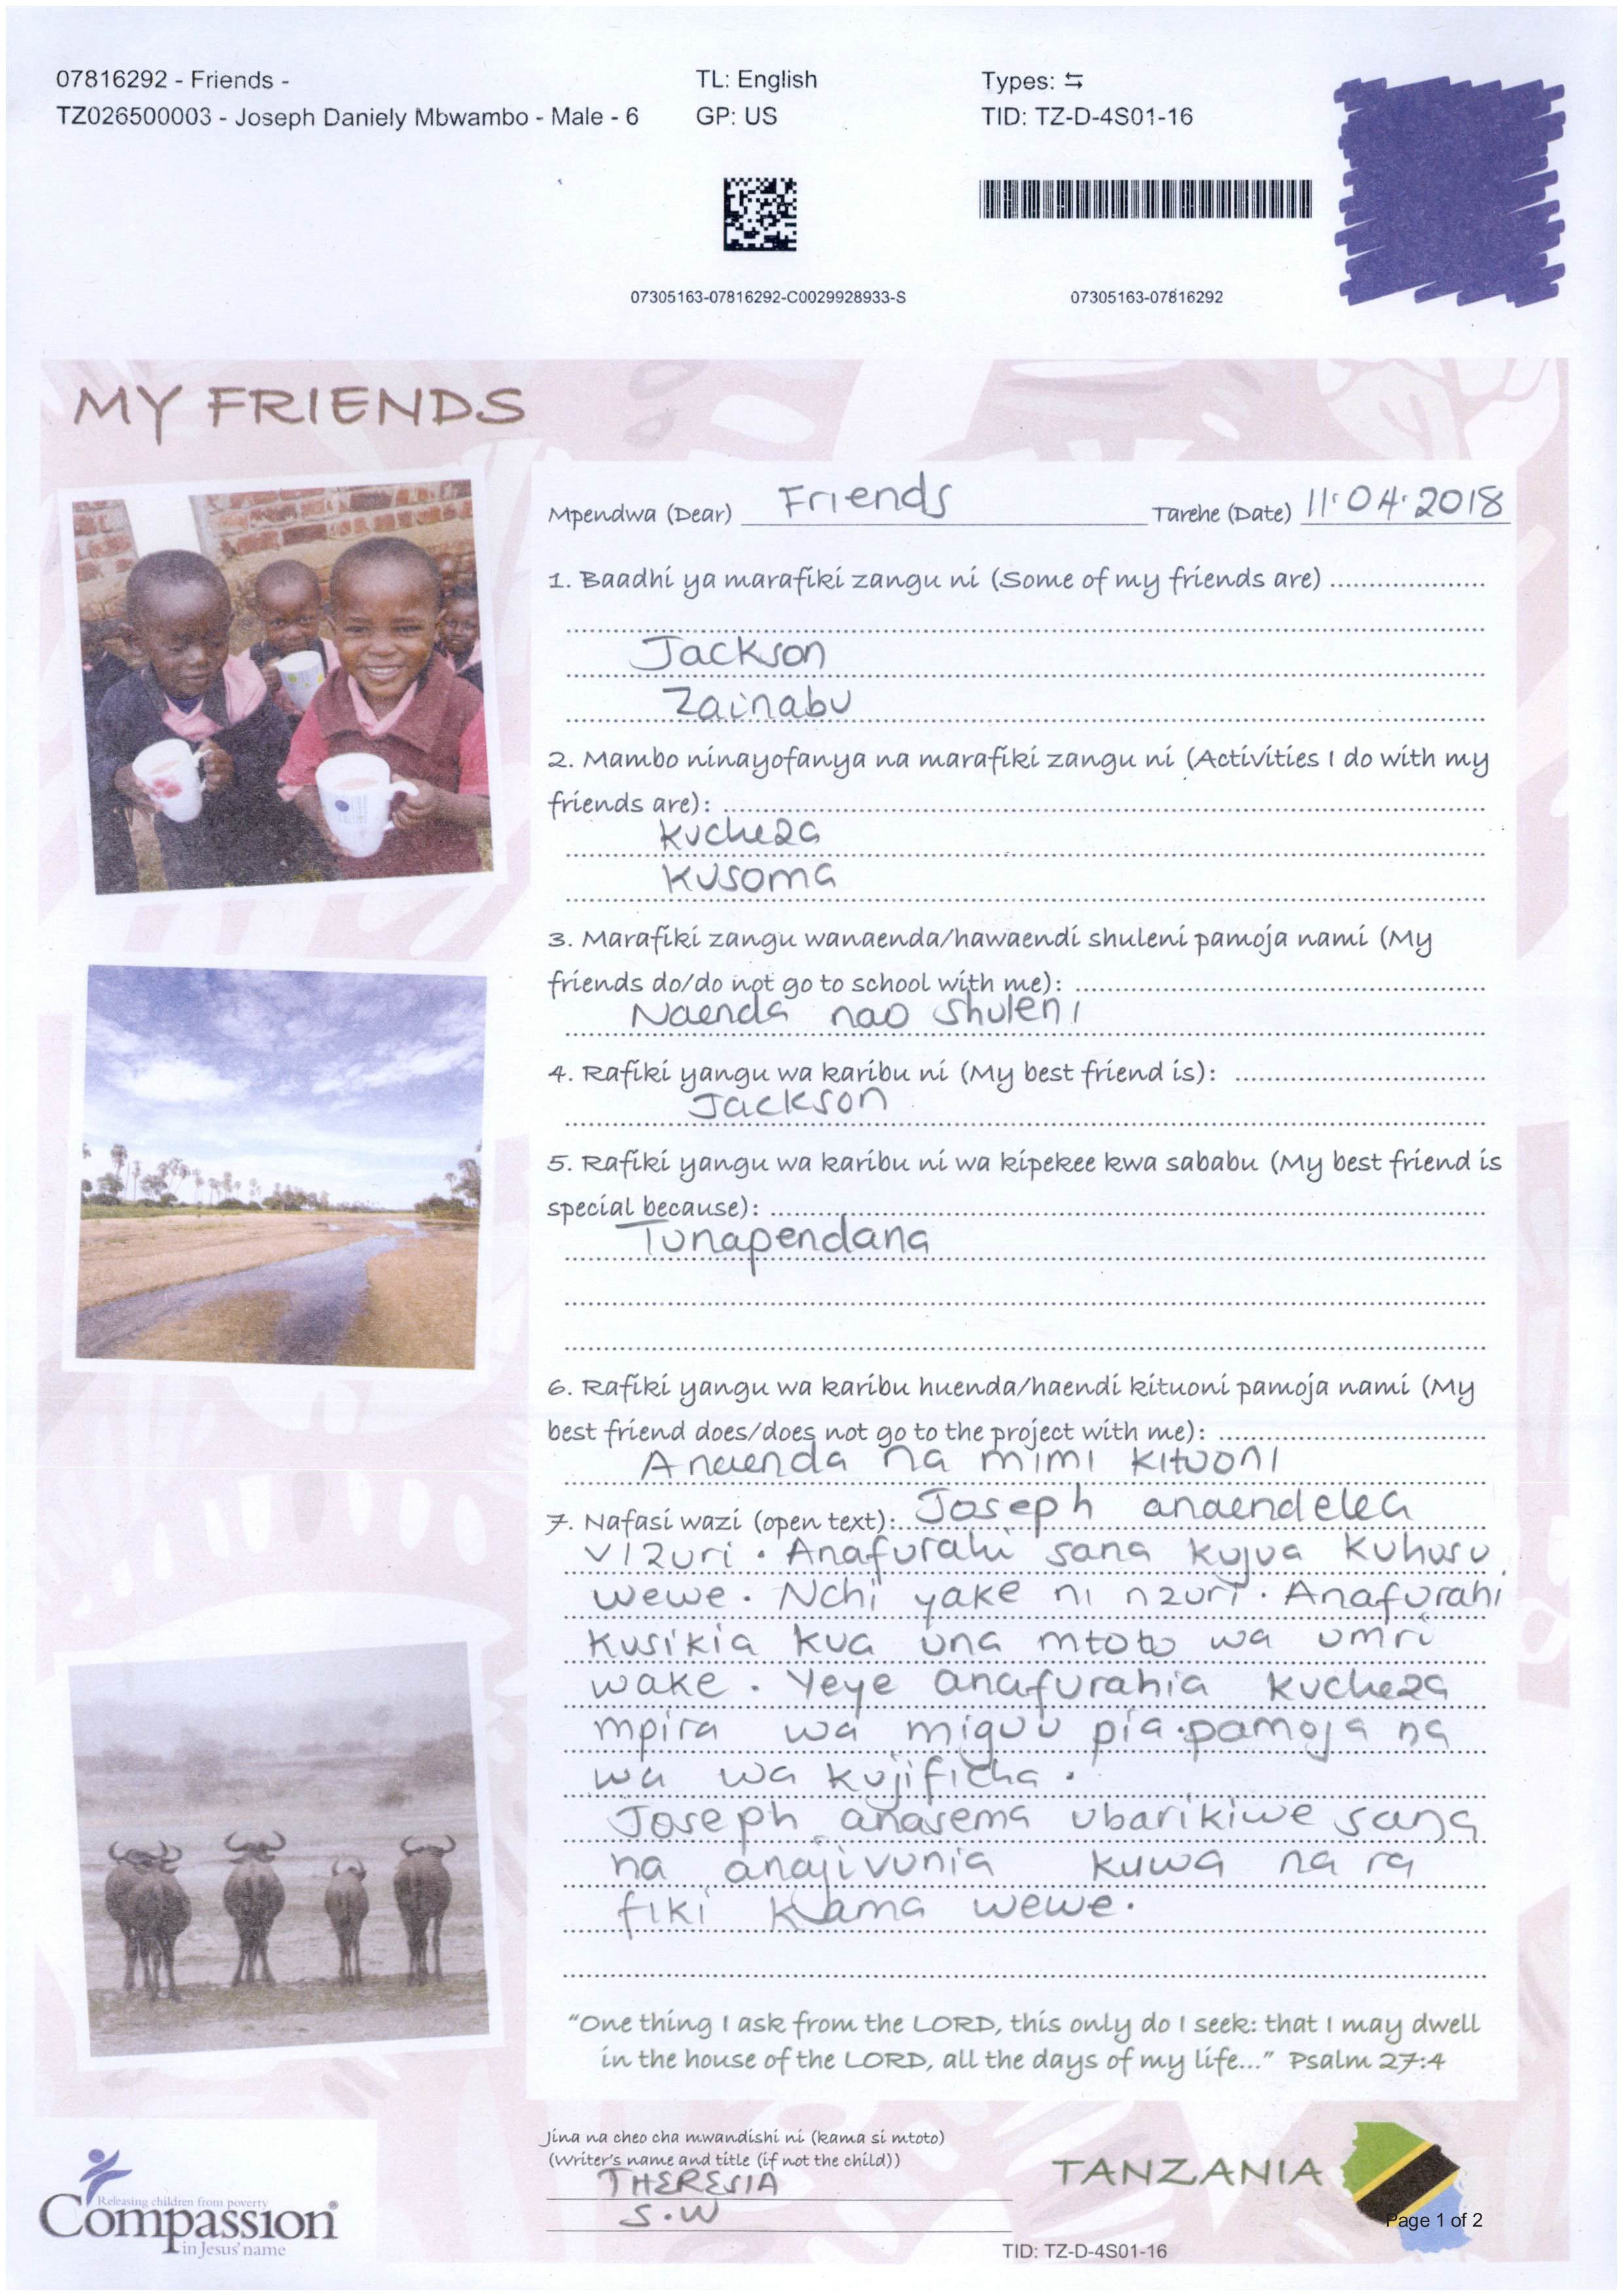 07816292 - Friends -
TZ026500003 - Joseph Daniely Mbwambo - Male - 6
TL: English
GP: US
Types: ⇆
TID: TZ-D-4S01-16
07305163-07816292-C0029928933-S
07305163-07816292
MY FRIENDS
Mpendwa (Dear) Friends Tarehe (Date) 11.04.2018
1. Baadhi ya marafiki zangu ni (Some of my friends are)
Jackson
Zainabu
2. Mambo ninayofanya na marafiki zangu ni (Activities I do with my
friends are):
Kucheza
Kusoma
3. Marafiki zangu wanaenda/hawaendi shuleni pamoja nami (My
friends do/do not go to school with me):
Naenda nao shuleni
4. Rafiki yangu wa karibu ni (My best friend is):
Jackson
5. Rafiki yangu wa karibu ni wa kipekee kwa sababu (My best friend is
special because):
Tunapendana
6. Rafiki yangu wa karibu huenda/haendi kituoni pamoja nami (My
best friend does/does not go to the project with me):
Anaenda na mimi kituoni
7. Nafasi wazi (open text): Joseph anaendelea
vizuri. Anafurahi sana kujua kuhusu
wewe. Nchi yake ni nzuri. Anafurahi
kusikia kua una mtoto wa umri
wake. Yeye anafurahia kucheza
mpira wa miguu pia.pamoja na
wa wa kujificha.
Joseph anasema ubarikiwe sana
na anajivunia kuwa na ra
fiki kama wewe.
"One thing I ask from the LORD, this only do I seek: that I may dwell
in the house of the LORD, all the days of my life..." Psalm 27:4
Jina na cheo cha mwandishi ni (kama si mtoto)
(Writer's name and title (if not the child))
THERESIA
S.W
Releasing children from poverty
Compassion®
in Jesus' name
TANZANIA
Page 1 of 2
TID: TZ-D-4S01-16